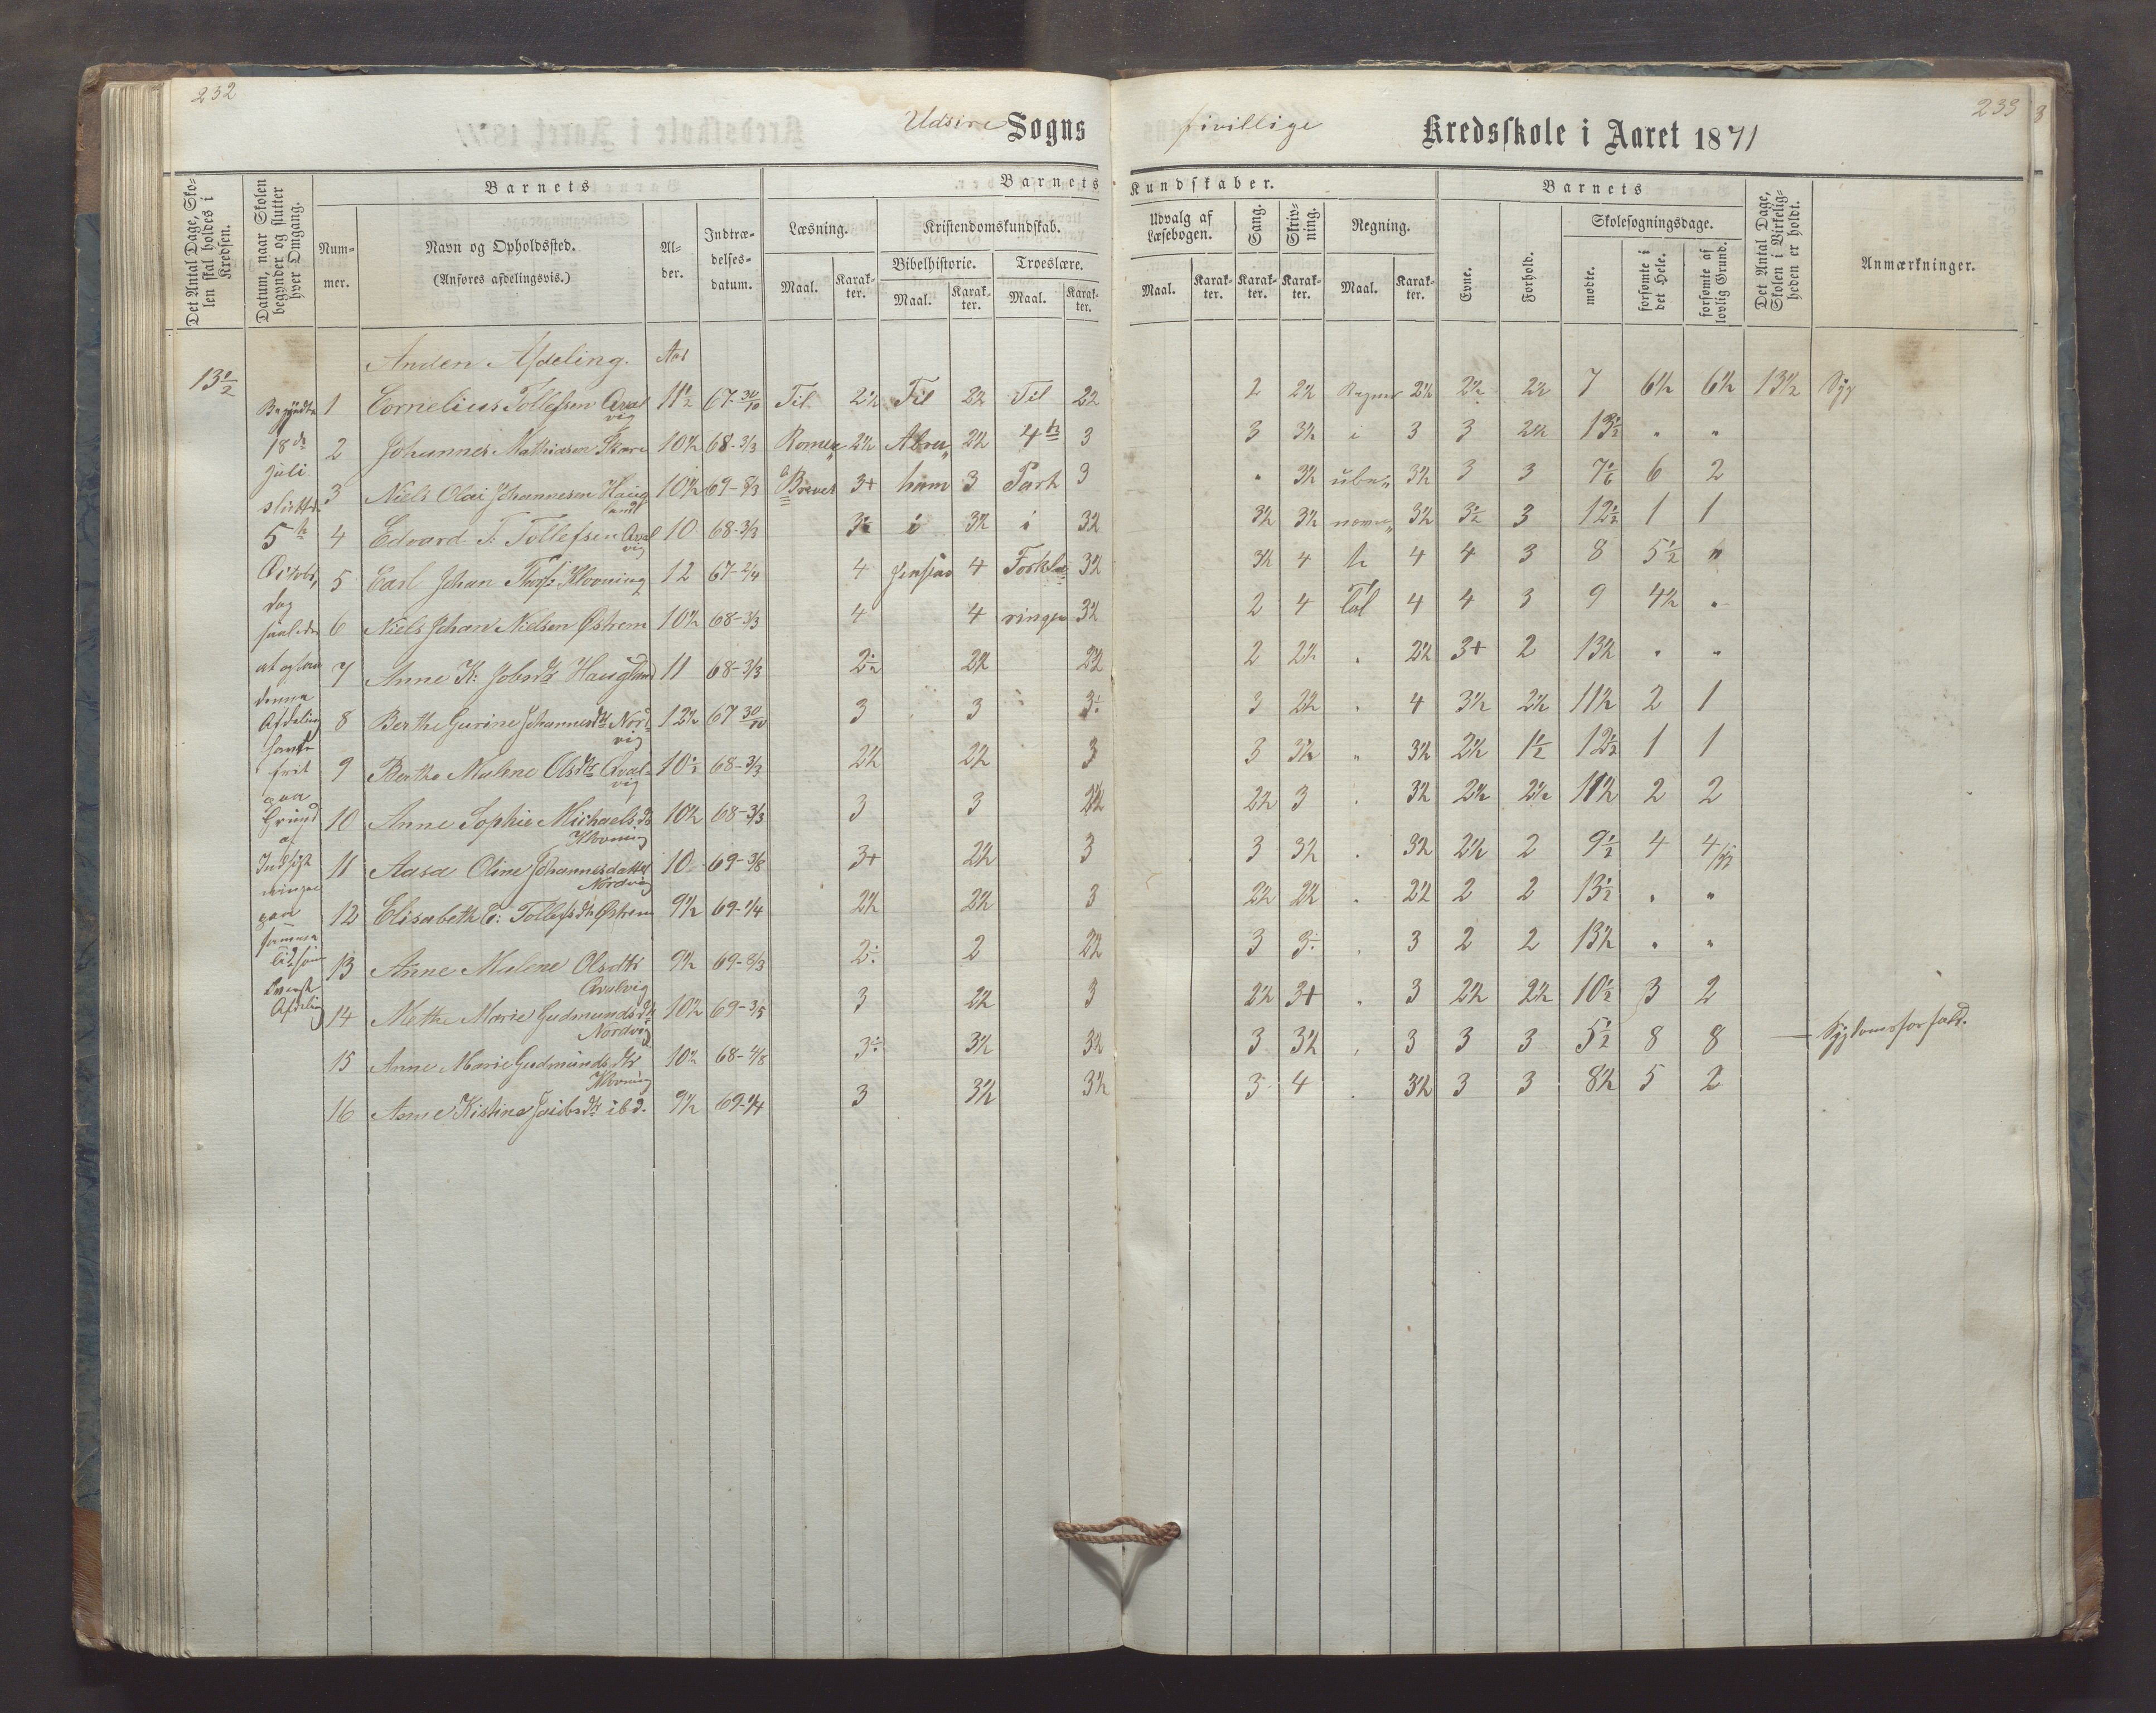 232
Udsire Sogns
frivillige Kredsskole i Aaret 1871
233
Det Antal Dage, Skolen skal holdes i Kredsen.
Datum, naar Skolen begynder og slutter hver Omgang.
Barnets
Nummer.
Navn og Opholdssted.
(Anføres afdelingsvis.)
Alder.
Indtrædelsesdatum.
Barnets Kundskaber.
Læsning.
Maal. Karakter.
Kristendomskundskab.
Bibelhistorie. Troeslære.
Maal. Karakter. Maal. Karakter.
Udvalg af Læsebogen.
Maal. Karakter.
Sang. Karakter.
Skrivning. Karakter.
Regning.
Maal. Karakter.
Barnets
Evne. Forhold.
Skolesøgningsdage.
mødte. forsømte i det Hele. forsømte af lovlig Grund.
Det Antal Dage, Skolen i Virkeligheden er holdt.
Anmærkninger.
Anden Afdeling. Aar
13½
Begyndte
18de
Juli
sluttede
5te
Octobr,
1 Cornelius Tollefsen Qvalvig 11½ 67-30/10 Til 2½ Til 2½ Til 2½ 2 2½ Regner 2½ 2½ 2½ 7 6½ 6½ 13½ Syg
2 Johannes Mathiasen Skare 10½ 68-3/3 Romer 2½ Abra 2½ 4de 3 3 3½ i 3 3 2½ 13½ " "
3 Niels Olai Johannesen Haugland 10½ 69-8/3 Brevet 3+ ham 3 Part 3 " 3½ ube 3½ 3 3 7½ 6 2
4 Edvard T. Tollefsen Qvalvig 10 68-3/3 3½ i 3½ i 3½ 3½ 3½ nævn 3½ 3½ 3 12½ 1 1
5 Carl Johan Thorss Klovning 12 67-2/4 4 4 Forkla 3½ 3½ 4 4 4 3 8 5½ "
6 Niels Johan Nielsen Østrem 10½ 68-3/3 4 4 ringen 3½ 2 4 Tal 4 4 3 9 4½ "
7 Anne K. Jobsdtr Haugland 11 68-3/3 2½ 2½ 2½ 2 2½ " 2½ 3+ 2 13½ " "
8 Berthe Gurine Johannesdtr Nordvig 12½ 67 30/10 3 3 3÷ 3 2½ " 4 3½ 2½ 11½ 2 1
9 Berthe Malene Olsdtr Qvalvig 10½ 68-3/3 2½ 2½ 3 3 3½ " 3½ 2½ 1½ 12½ 1 1
10 Anne Sophie Michaelsdtr Klovning 10½ 68-3/3 3 3 2½ 2½ 3 " 3½ 2½ 2½ 11½ 2 2
11 Aasa Oline Johannesdatter Nordvig 10 69-3/8 3+ 2½ 3 3 3½ " 3½ 2½ 2 9½ 4 4
12 Elisabeth E. Tollefsdtr Østrem 9½ 69-1/4 2½ 2½ 3 2½ 2½ " 2½ 2 2 13½ " "
13 Anne Malene Olsdtr Qvalvig 9½ 69-8/3 2÷ 2 2½ 3 3÷ " 3 2 2 13½ " "
14 Mette Marie Gudmundsdtr Nordvig 10½ 69-3/5 3 2½ 3 2½ 3+ " 3 2½ 2½ 10½ 3 2
15 Anne Marie Gudmundsdtr Klovning 10½ 68-4/8 3÷ 3½ 3½ 3 3½ " 3 3 3 5½ 8 8 Sygdomsforfald.
16 Anne Kistine Jacobsdtr ibd. 9½ 69-1/4 3 3½ 3½ 3 4 " 3½ 3 3 8½ 5 2